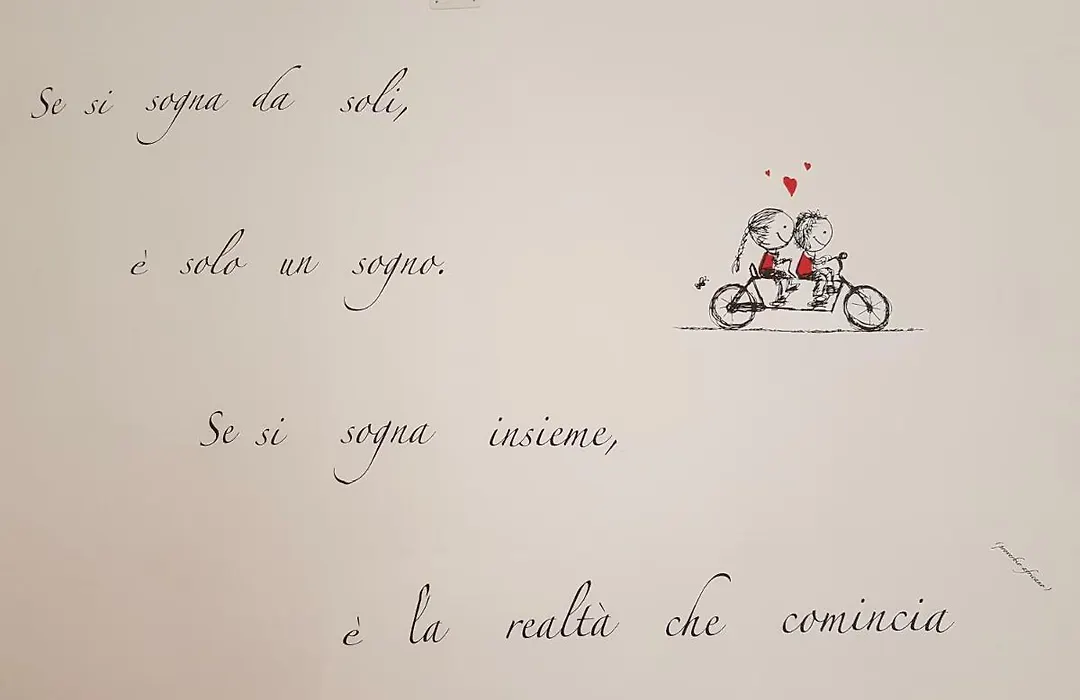 Se si sogna da soli,
è solo un sogno.
Se si sogna insieme,
è la realtà che comincia
(proverbio africano)